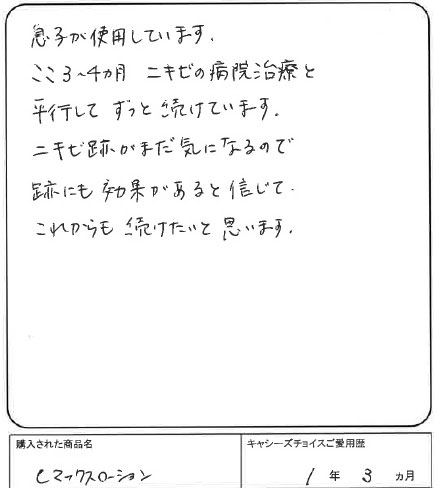 息子が使用しています.
ここ3~4カ月 ニキビの病院治療と
平行して ずっと続けています.
ニキビ跡がまだ気になるので
跡にも効果があると信じて.
これからも続けたいと思います.
購入された商品名
キャシーズチョイスご愛用歴
Cマックスローション
1年3ヵ月